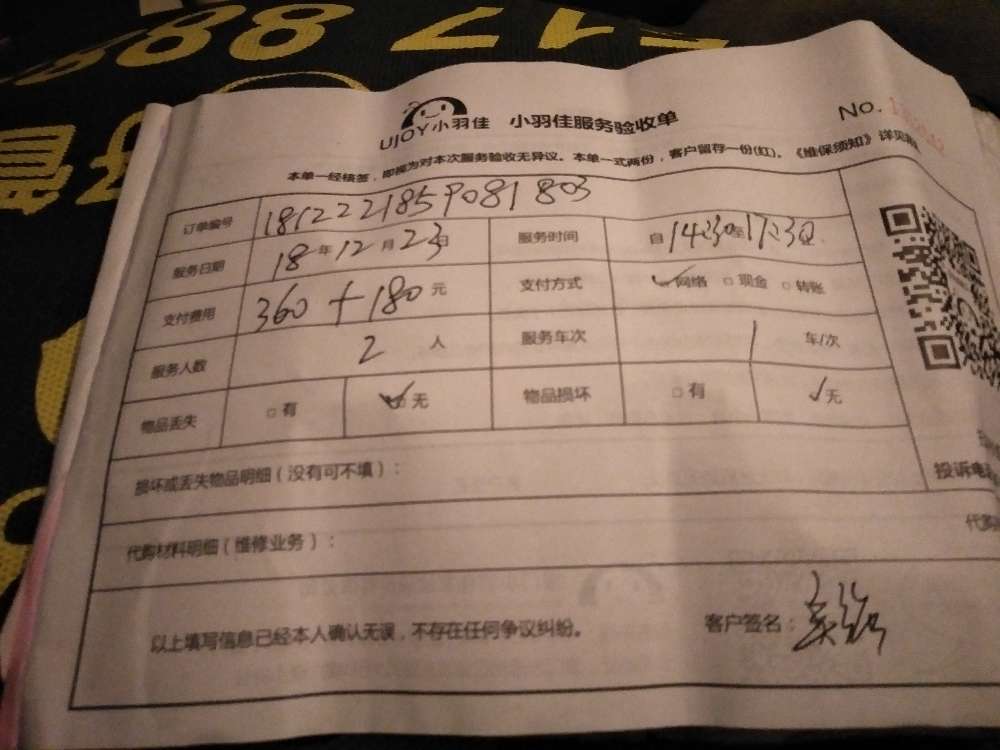 UJOY小羽佳 小羽佳服务验收单
No.
本单一经核签，即视为对本次服务验收无异议。本单一式两份，客户留存一份(红)。《维保须知》详见
订单编号 1812221859081803
服务日期 18年12月23日 服务时间 自14:30至17:30
支付费用 360+180元 支付方式 ✓网络 □现金 □转账
服务人数 2人 服务车次 1 车/次
物品丢失 □有 ✓无 物品损坏 □有 ✓无
损坏或丢失物品明细（没有可不填）：
投诉电
代购材料明细（维修业务）：
代购
以上填写信息已经本人确认无误，不存在任何争议纠纷。 客户签名：